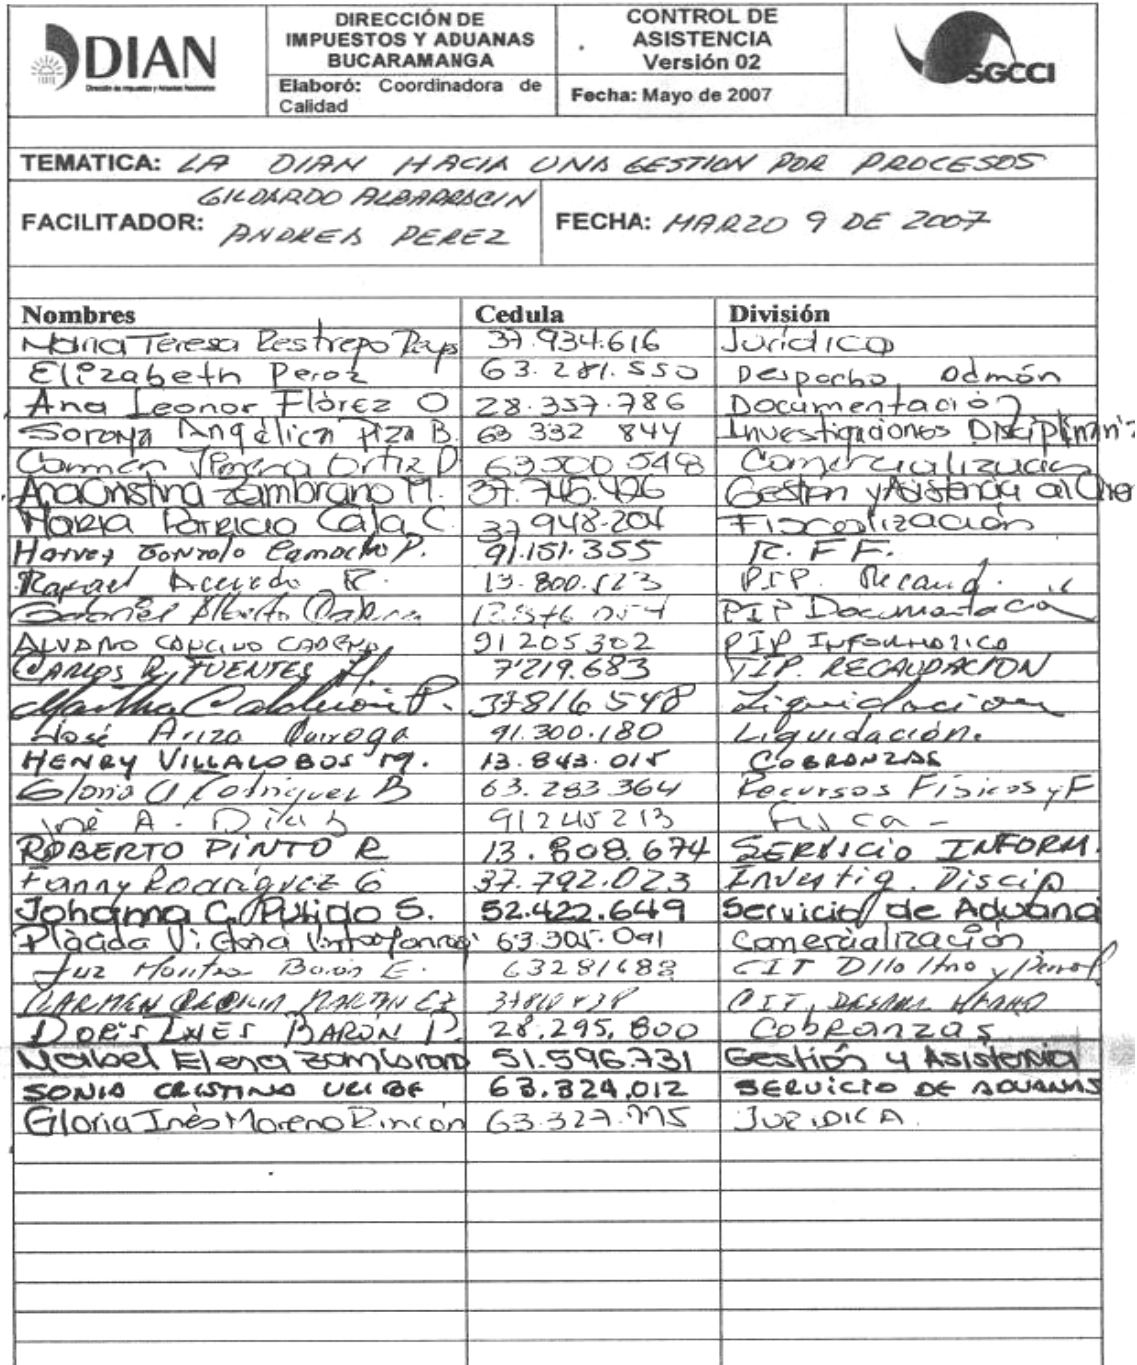 DIAN
Dirección de Impuestos y Aduanas Nacionales
DIRECCIÓN DE
IMPUESTOS Y ADUANAS
BUCARAMANGA
Elaboró: Coordinadora de
Calidad
CONTROL DE
ASISTENCIA
Versión 02
Fecha: Mayo de 2007
SGCCI
TEMATICA: LA DIAN HACIA UNA GESTION POR PROCESOS
FACILITADOR: GILDARDO ALBARRACIN
ANDREA PEREZ
FECHA: MARZO 9 DE 2007
Nombres Cedula División
Maria Teresa Restrepo 37.934.616 Jurídica
Elizabeth Perez 63.281.550 Despacho Admón
Ana Leonor Flórez O 28.357.786 Documentación
Soroya Angélica Piza B. 63 332 844 Investigaciones
Carmen Ortiz 63500548 Comercialización
Ana Cristina Zambrano M. 37.745.426 Gestion y Asistencia al
Maria Patricia Cala C. 37948.204 Fiscalización
Harvey Gonzalo Camacho P. 91.151.355 R. F F.
Rafael Acevedo R. 13.800.523 PIP.
Gabriel Alberto PIP Documentación
ALVARO CADENA 91205302 PIP INFORMATICA
CARLOS R. FUENTES 7'219.683 RECAUDACION
Martha Calderón P. 37816548 Liquidacion
José Ariza Quiroga 91.300.180 Liquidación.
HENRY VILLALOBOS M. 13.843.015 COBRANZAS
Gloria Rodriguez B 63.283364 Recursos Físicos y F
José A. 91245213
ROBERTO PINTO R 13.808.674 SERVICIO INFORM.
Fanny Rodríguez G 37.792.023 Investig. Discip
Johanna C. Pulido S. 52.422.649 Servicio de Aduana
Placida Victoria 63.305.091 Comercialización
Luz Baron E. 63281688 CIT
CARMEN CECILIA CIT,
DORIS INES BARON P. 28.295.800 Cobranzas
Maibel Elena Zambrano 51.596.731 Gestión y Asistencia
SONIA CRISTINA URIBE 63.324.012 SERVICIO DE ADUANAS
Gloria Inés Moreno Rincón 63.327.775 JURIDICA